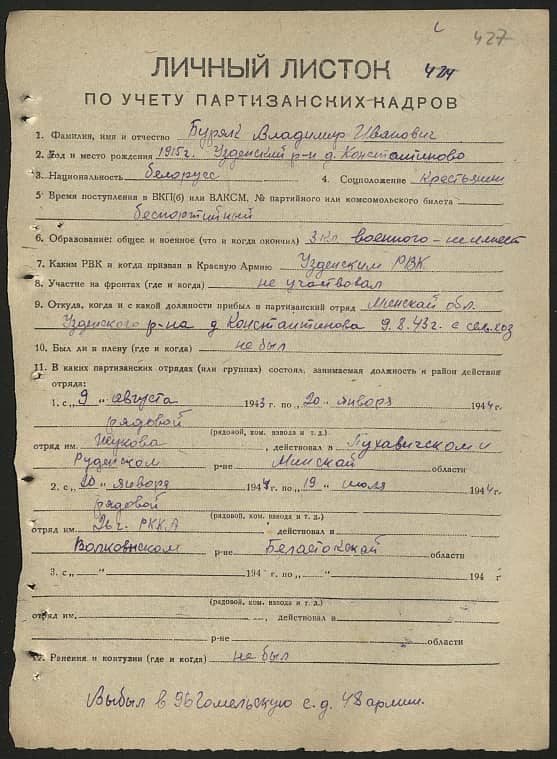 427
ЛИЧНЫЙ ЛИСТОК 424
ПО УЧЕТУ ПАРТИЗАНСКИХ КАДРОВ
1. Фамилия, имя и отчество Буряк Владимир Иванович
2. Год и место рождения 1915г. Узденский р-н д. Константиново
3. Национальность белорусс 4. Соцположение крестьянин
5 Время поступления в ВКП(б) или ВЛКСМ, № партийного или комсомольского билета
беспортийный
6. Образование: общее и военное (что и когда окончил) 3 кл военного - не имеет
7. Каким РВК и когда призван в Красную Армию Узденским РВК
8. Участие на фронтах (где и когда) не участвовал
9. Откуда, когда и с какой должности прибыл в партизанский отряд Менской обл.
Узденского р-на д Константинова 9.8.43г. с сельхоз
10. Был ли в плену (где и когда) не был
11. В каких партизанских отрядах (или группах) состоял, занимаемая должность и район действия
отряда:
1. с „9 " августа 1943 г. по „20 " января 1944 г.
рядовой
(рядовой, ком. взвода и т. д.)
отряд им. Жукова, действовал в Пухавичском и
Руденском р-не Минской области
2. с „20 " января 1944 г. по „19 " июля 1944 г.
рядовой
(рядовой, ком. взвода и т. д.)
отряд им. 26 г. РККА, действовал в
Волковыском р-не Беластокской области
3. с „ " 194 г. по „ " 194 г
(рядовой, ком. взвода и т. д.)
отряд им., действовал в
р-не области
12. Ранения и контузии (где и когда) не был
Выбыл в 96 Гомельскую с. д. 48 армии.